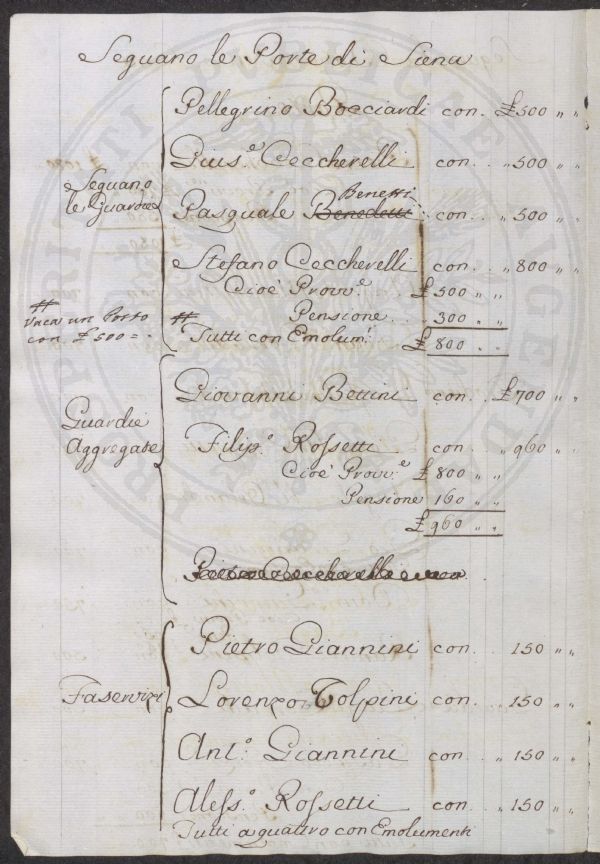 Seguano le Porte di Siena
Pellegrino Bocciardi con. £ 500 „ „
Gius.e Ceccherelli con. „ 500 „ „
Seguano
le Guardie
Benetti
Pasquale Benedetti con. „ 500 „ „
Stefano Ceccherelli con. „ 800 „ „
Cioè Provv.e £ 500 „ „
Pensione 300 „ „
#
Vaca un Posto
con £ 500 = .
# Tutti con Emolum.i £ 800 „ „
Giovanni Bettini con. £ 700 „ „
Guardie
Aggregate
Filip.o Rossetti con „ 960 „ „
Cioè Provv.e £ 800 „ „
Pensione 160 „ „
£ 960 „ „
Pietro Giannini con. „ 150 „ „
Faservizi
Lorenzo Tolpini con. „ 150 „ „
Ant.o Giannini con. „ 150 „ „
Aless.o Rossetti con. „ 150 „ „
Tutti a quattro con Emolumenti